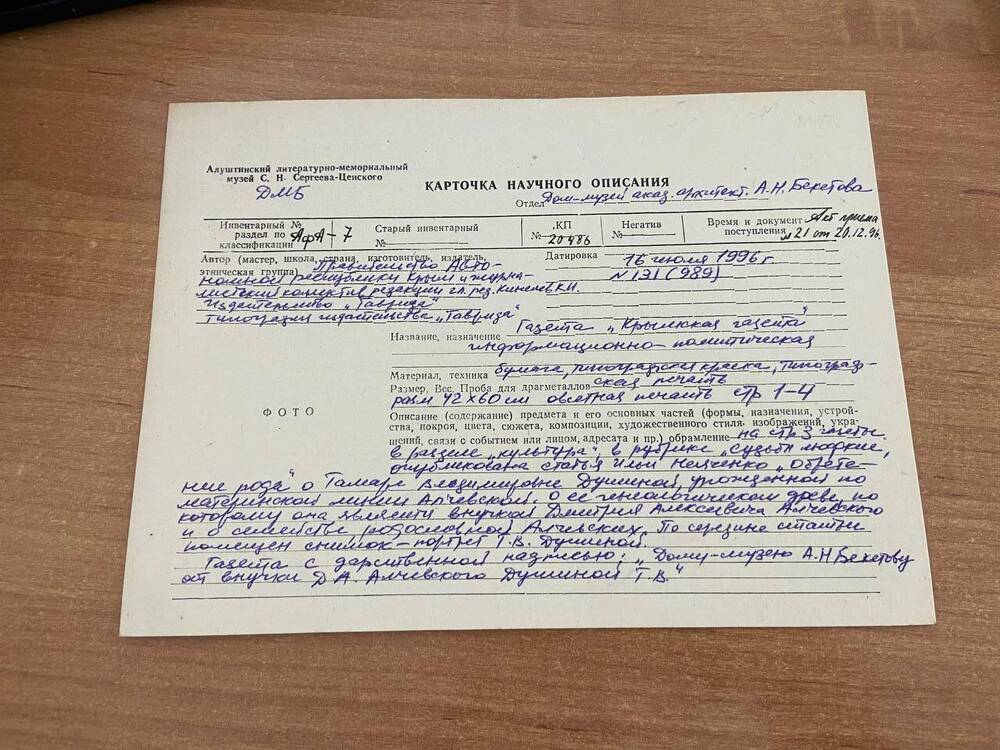 Алуштинский литературно-мемориальный
музей С. Н. Сергеева-Ценского
ДМБ
КАРТОЧКА НАУЧНОГО ОПИСАНИЯ
Отдел Дом-музей акад. архитект. А.Н. Бекетова
Инвентарный №
раздел по
классификации АфА-7
Старый инвентарный
№
КП
№ 20486
Негатив
№
Время и документ
поступления Акт приема
№21 от 20.12.96.
Автор (мастер, школа, страна, изготовитель, издатель,
этническая группа) Правительство Авто-
номной республики Крым и журна-
листский коллектив редакции гл. ред.
Издательство „Таврида"
типография издательства „Таврида"
Датировка 16 июля 1996 г
N 131 (989)
Название, назначение Газета „Крымская газета"
информационно-политическая
Материал, техника бумага, типографская краска, типограф-
ская печать
Размер, Вес. Проба для драгметаллов
разм 42х60 см офсетная печать стр 1-4
ФОТО
Описание (содержание) предмета и его основных частей (формы, назначения, устрой-
ства, покроя, цвета, сюжета, композиции, художественного стиля, изображения, укра-
шений, связи с событием или лицом, адресата и пр.) обрамление на стр 3 газеты
в разделе „культура", в рубрике „судьбы людские,
опубликована статья Ильи „Обрете-
ние рода" о Тамаре Владимировне Душиной, урожденной по
материнской линии Алчевской. О ее генеологическом древе, по
которому она является внучкой Дмитрия Алексеевича Алчевского
и о семействе родословной Алчевских. По середине статьи
помещен снимок-портрет Т.В. Душиной.
Газета с дарственной надписью: „Дому-музею А.Н Бекетову
от внучки Д.А. Алчевского Душиной Т.В."